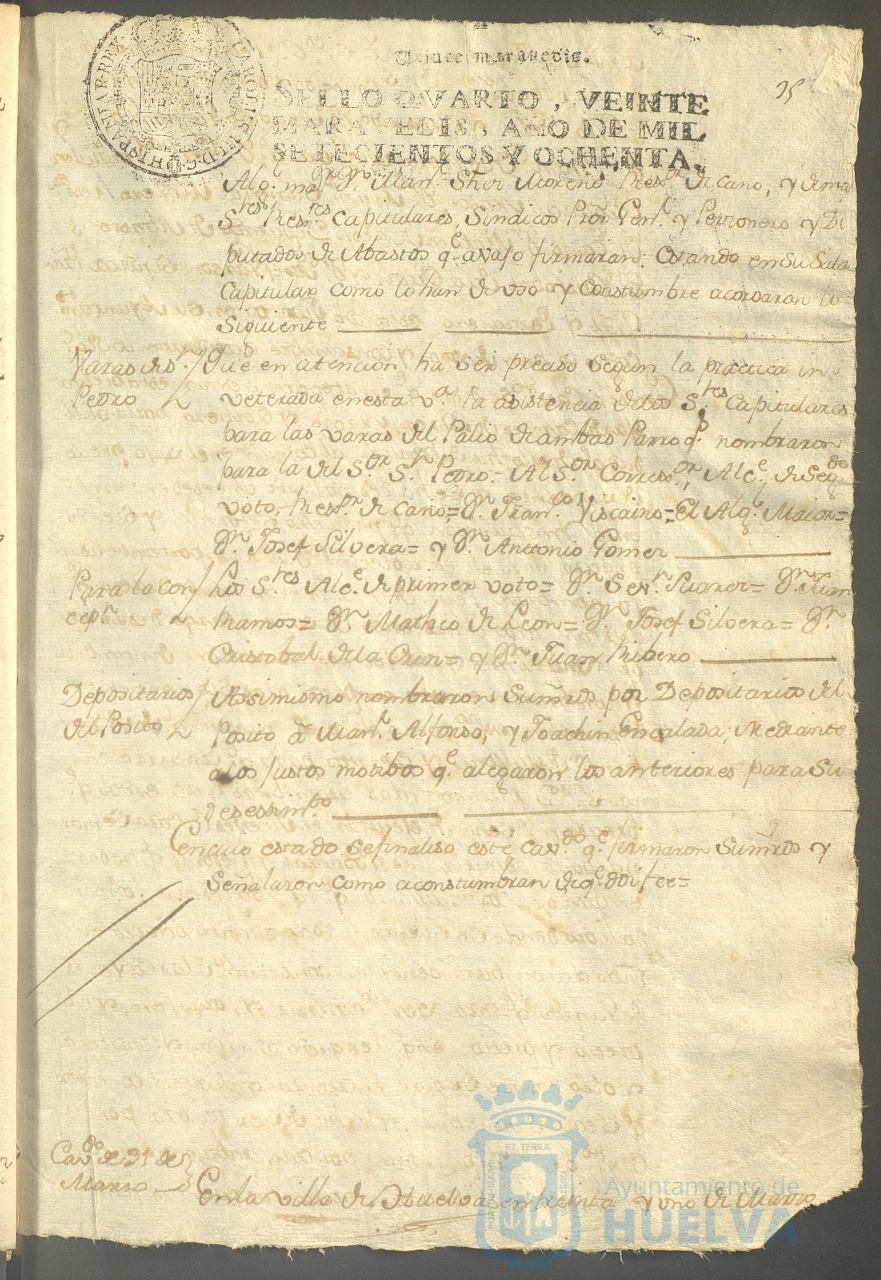 25
CAROLUS III D G HISPANIAR REX
maravedis.
SELLO QVARTO, VEINTE
MARAVEDIS, AÑO DE MIL
SETECIENTOS Y OCHENTA.
Alg.l ma.r D.n Man.l Moreno Rex.or Decano, y demas
S.res Rex.res Capitulares, Sindicos Pro.r Gen.l y Perzonero y Di
putados de Abastos q.e avajo firmaran: Estando en su Sala
Capitular como lo han de uso y Constumbre acordaron lo
Siguiente
Varas de s.n
Pedro
Que en atencion ha ser preciso segun la practica in
veterada en esta v.a la asistencia de los S.res Capitulares
para las varas del Palio de ambas Parroq.s nombraron
para la del S.or S.n Pedro= Al S.or Correx.or, Alc.e de Seg.do
voto, Rex.or Decano= D.n Fran.co Viscaino= El Alg.l Maior=
D.n Josef Silvera= y D.n Anttonio Gomez
Para la con
cep.n
Los S.res Alc.e de primer voto= D.n Sev.n Suarez= D.n Juan
Ramos= D.n Matheo de Leon= D.n Josef Silvera= D.n
Cristobal de la Cruz= y D.n Juan Ribero
Depositarios
del Posito
Assimismo nombraron Sum.rds por Depositarios del
Posito a Man.l Alfonso, y Joachin Encalada; mediante
a los justos motibos q.e alegaron los anteriores para su
desesim.to
En cuio estado se finaliso este Cav.do q.e firmaron Sum.rds y
Señalaron como aconstumbran de q.e doi fee=
Cav.do de 31 de
Marzo
En la villa de Huelva en treinta y uno de Marzo
EL TERRÆ
Ayuntamiento de
HUELVA